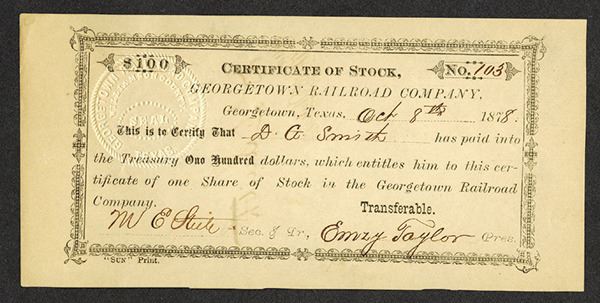 $100
CERTIFICATE OF STOCK,
No. 103
GEORGETOWN RAILROAD COMPANY.
Georgetown, Texas, Oct 8th 1878.
This is to Certify That D. A. Smith has paid into
the Treasury One Hundred dollars, which entitles him to this cer-
tificate of one Share of Stock in the Georgetown Railroad
Company.
Transferable.
M E Steele Sec. & Tr., Emzy Taylor Pres.
"SUN" Print.
GEORGETOWN
SEAL
TEXAS